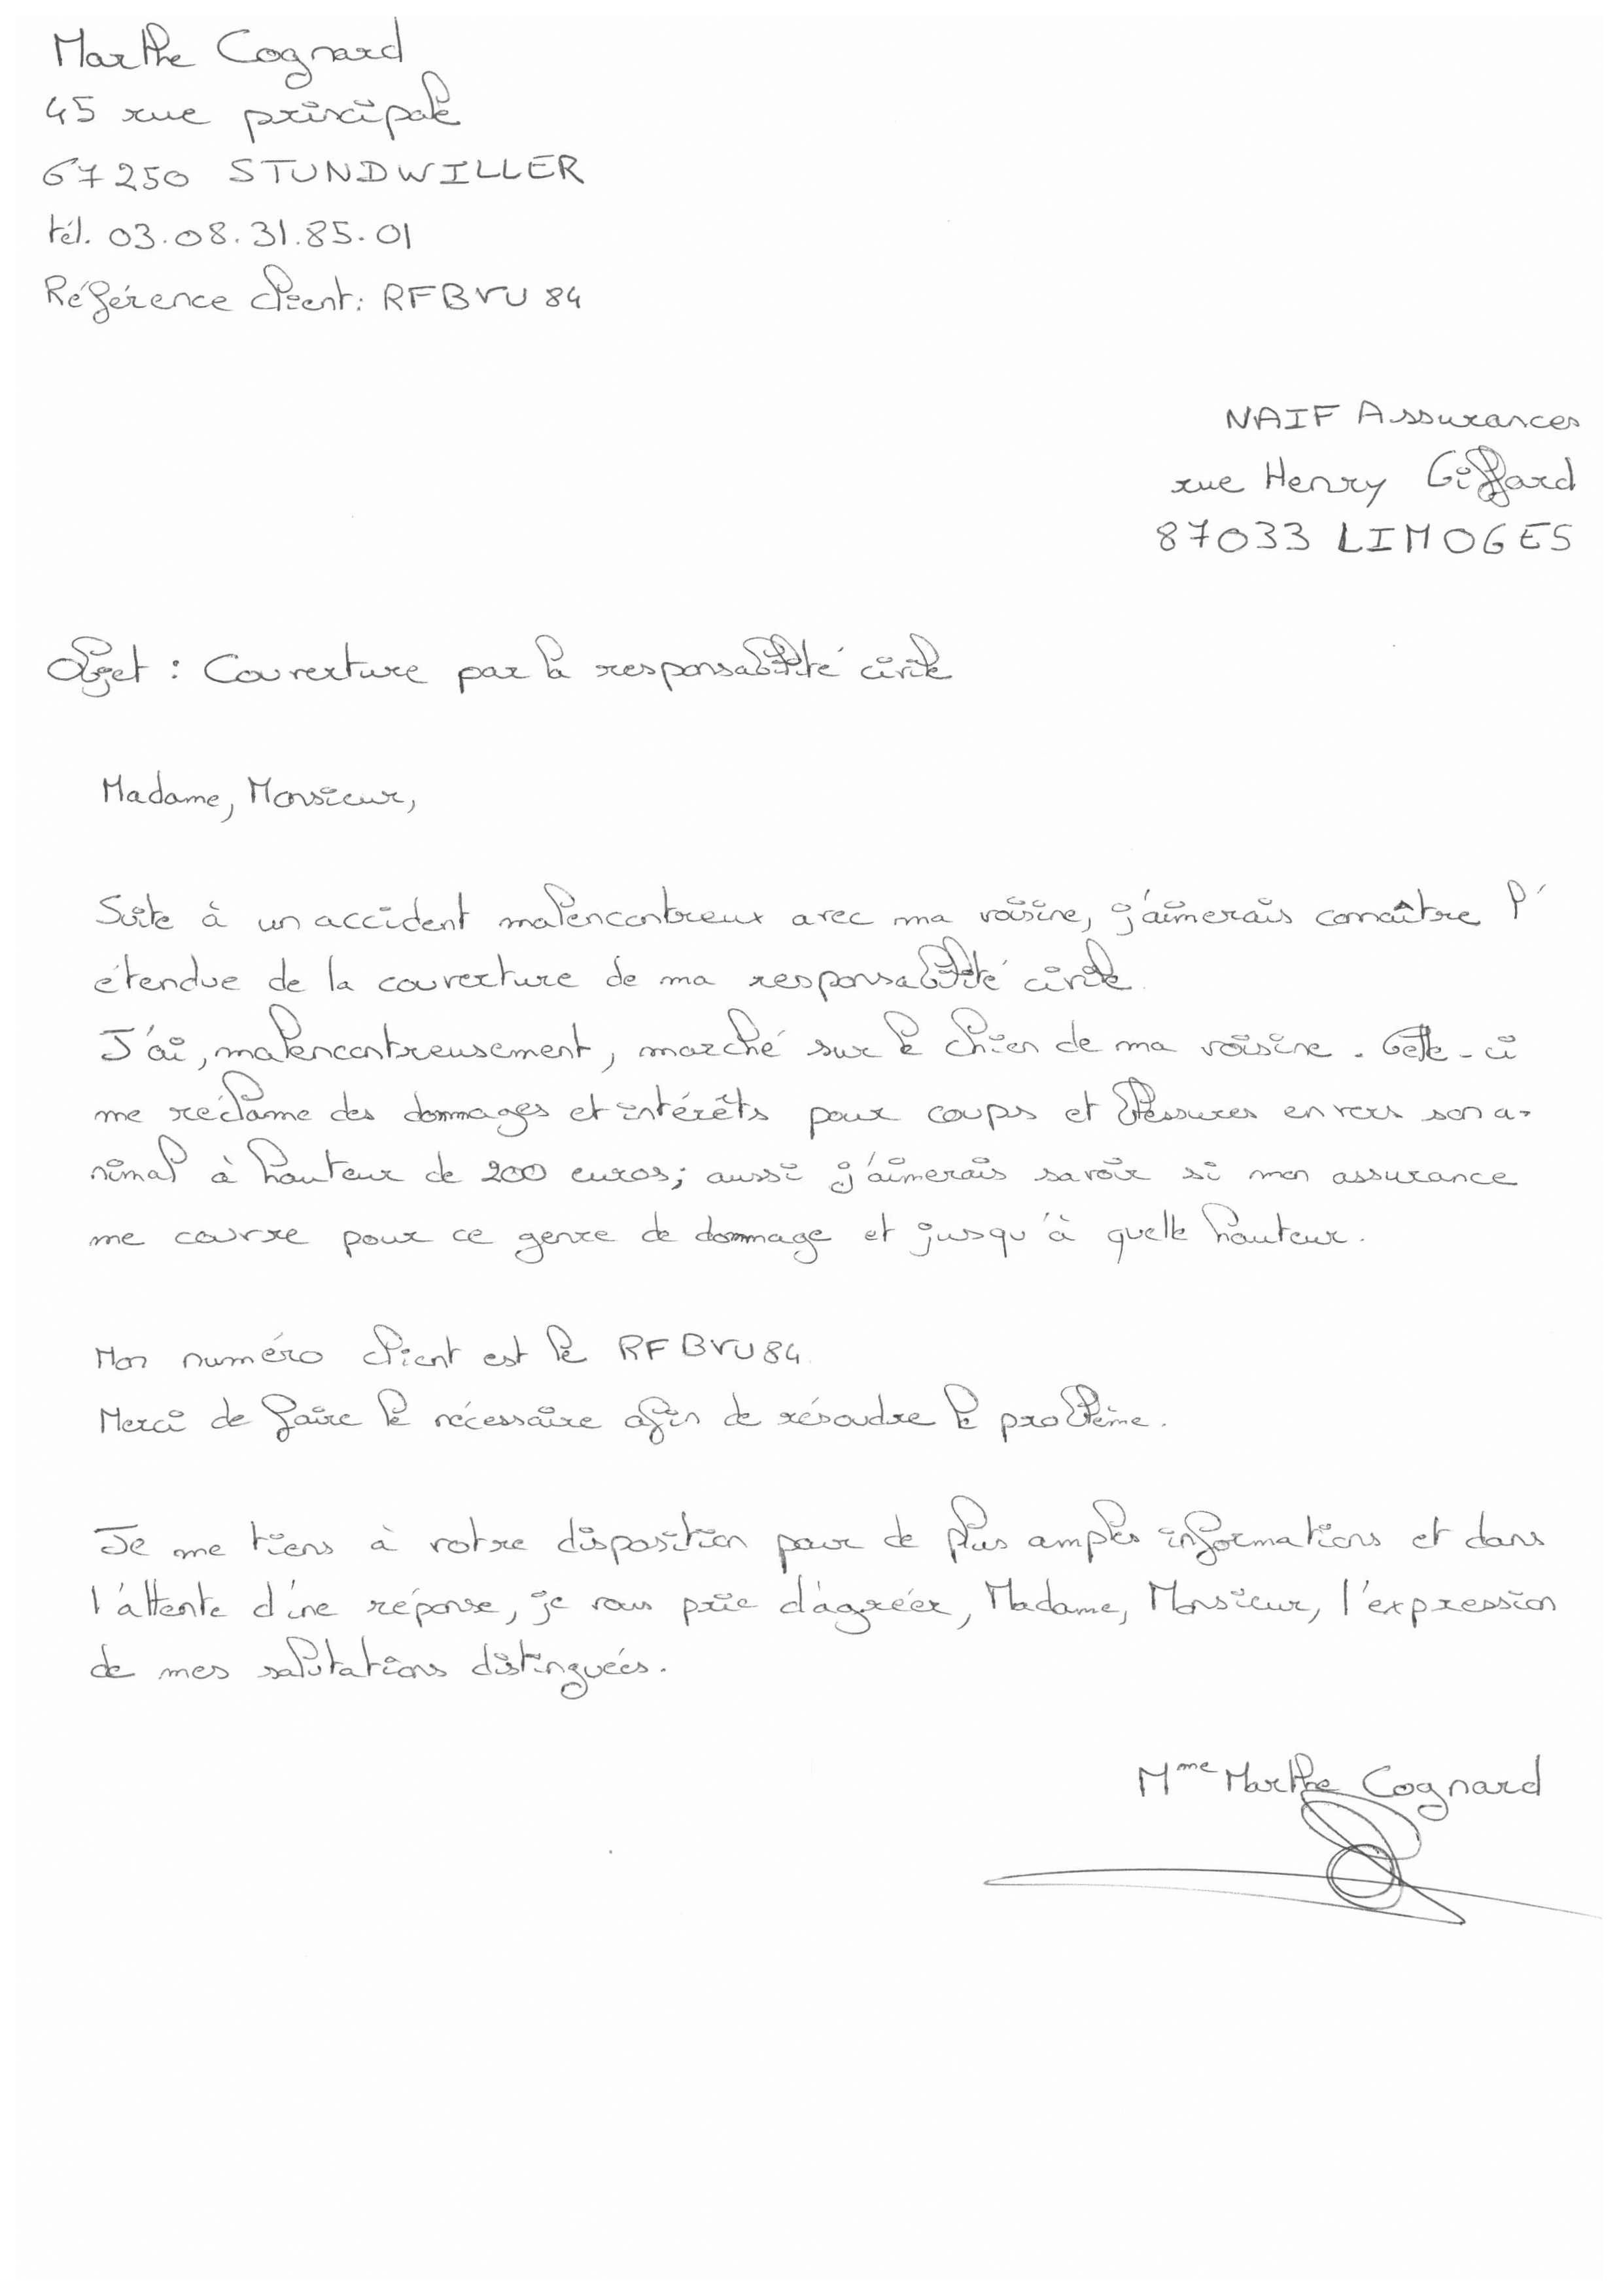 Marthe Cognard
45 rue principale
67250 STUNDWILLER
tél. 03.08.31.85.01
Référence client: RFBVU 84
NAIF Assurances
rue Henry Giffard
87033 LIMOGES
Objet : Couverture par la responsabilité civile
Madame, Monsieur,
Suite à un accident malencontreux avec ma voisine, j'aimerais connaître l'
étendue de la couverture de ma responsabilité civile.
J'ai, malencontreusement, marché sur le chien de ma voisine. Celle-ci
me réclame des dommages et intérêts pour coups et blessures envers son a-
nimal à hauteur de 200 euros; aussi j'aimerais savoir si mon assurance
me couvre pour ce genre de dommage et jusqu'à quelle hauteur.
Mon numéro client est le RFBVU84
Merci de faire le nécessaire afin de résoudre le problème.
Je me tiens à votre disposition pour de plus amples informations et dans
l'attente d'une réponse, je vous prie d'agréer, Madame, Monsieur, l'expression
de mes salutations distinguées.
Mme Marthe Cognard